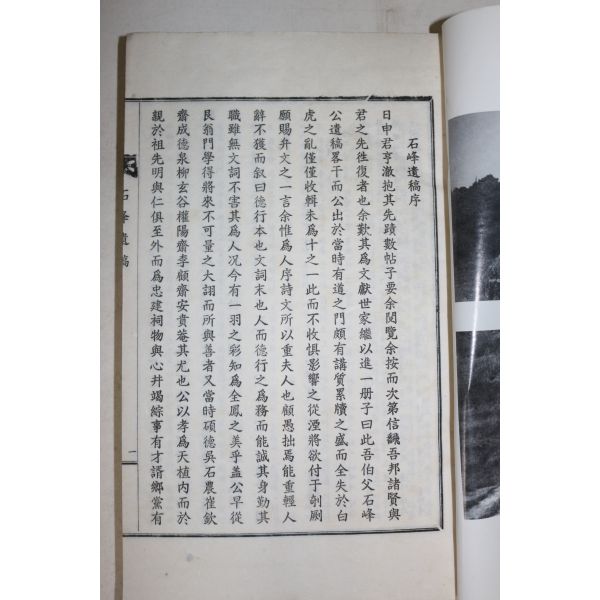 石峰遺稿序
日申君亨澈抱其先蹟數帖子要余閱覽余按而次第信驗吾邦諸賢與
君之先往復者也余歎其爲文獻世家繼以進一册子曰此吾伯父石峰
公遺稿畧干而公出於當時有道之門頗有講質累牘之盛而全失於白
虎之亂僅僅收輯未爲十之一此而不收惧影響之從湮將欲付于剞劂
願賜弁文之一言余惟爲人序詩文所以重夫人也顧愚拙焉能重輕人
辭不獲而叙曰德行本也文詞末也人而德行之爲務而能誠其身勤其
職雖無文詞不害其爲人况今有一羽之彩知爲全鳳之美乎盖公早從
艮翁門學得將來不可量之大詡而所與善者又當時碩德吳石農崔欽
齋成德泉柳玄谷權陽齋李顧齋安賁菴其尤也公以孝爲天植内而於
親於祖先明與仁俱至外而爲忠建祠物與心井竭綜事有才諝鄉黨有
石峰遺稿
一